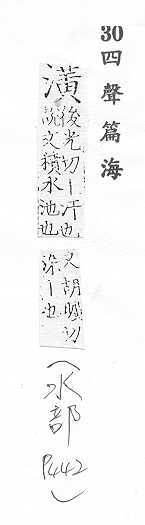 30四聲篇海
潢後光切丨汙也
說文積水池也
又胡曠切
染丨也
(水部 P442)